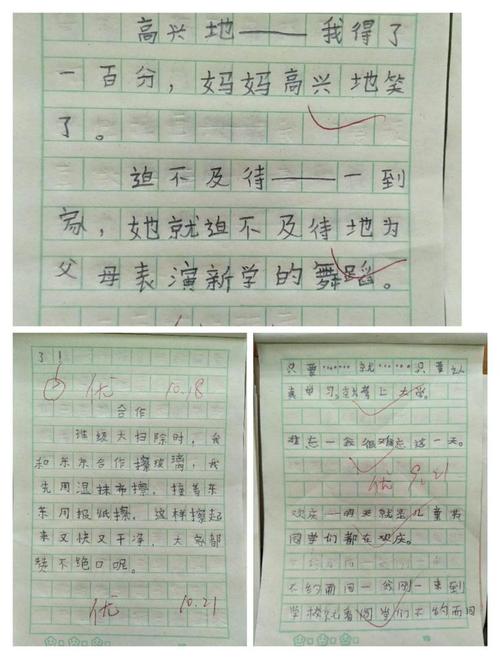 高兴地——我得了
一百分，妈妈高兴地笑
了。
迫不及待——一到
家，她就迫不及待地为
父母表演新学的舞蹈。
了！
优 10.18
合作
班级大扫除时，我
和东东合作擦玻璃，我
先用湿抹布擦，接着东
东用报纸擦，这样擦起
来又快又干净，大家都
赞不绝口呢。
优 10.21
只要……就……只要认
真学习，就考上大学。
难忘一我很难忘这一天。
优 9.21
欢庆一明天就是儿童节
同学们都在欢庆。
不约而同一我刚一来到
学校就看同学们不约而同